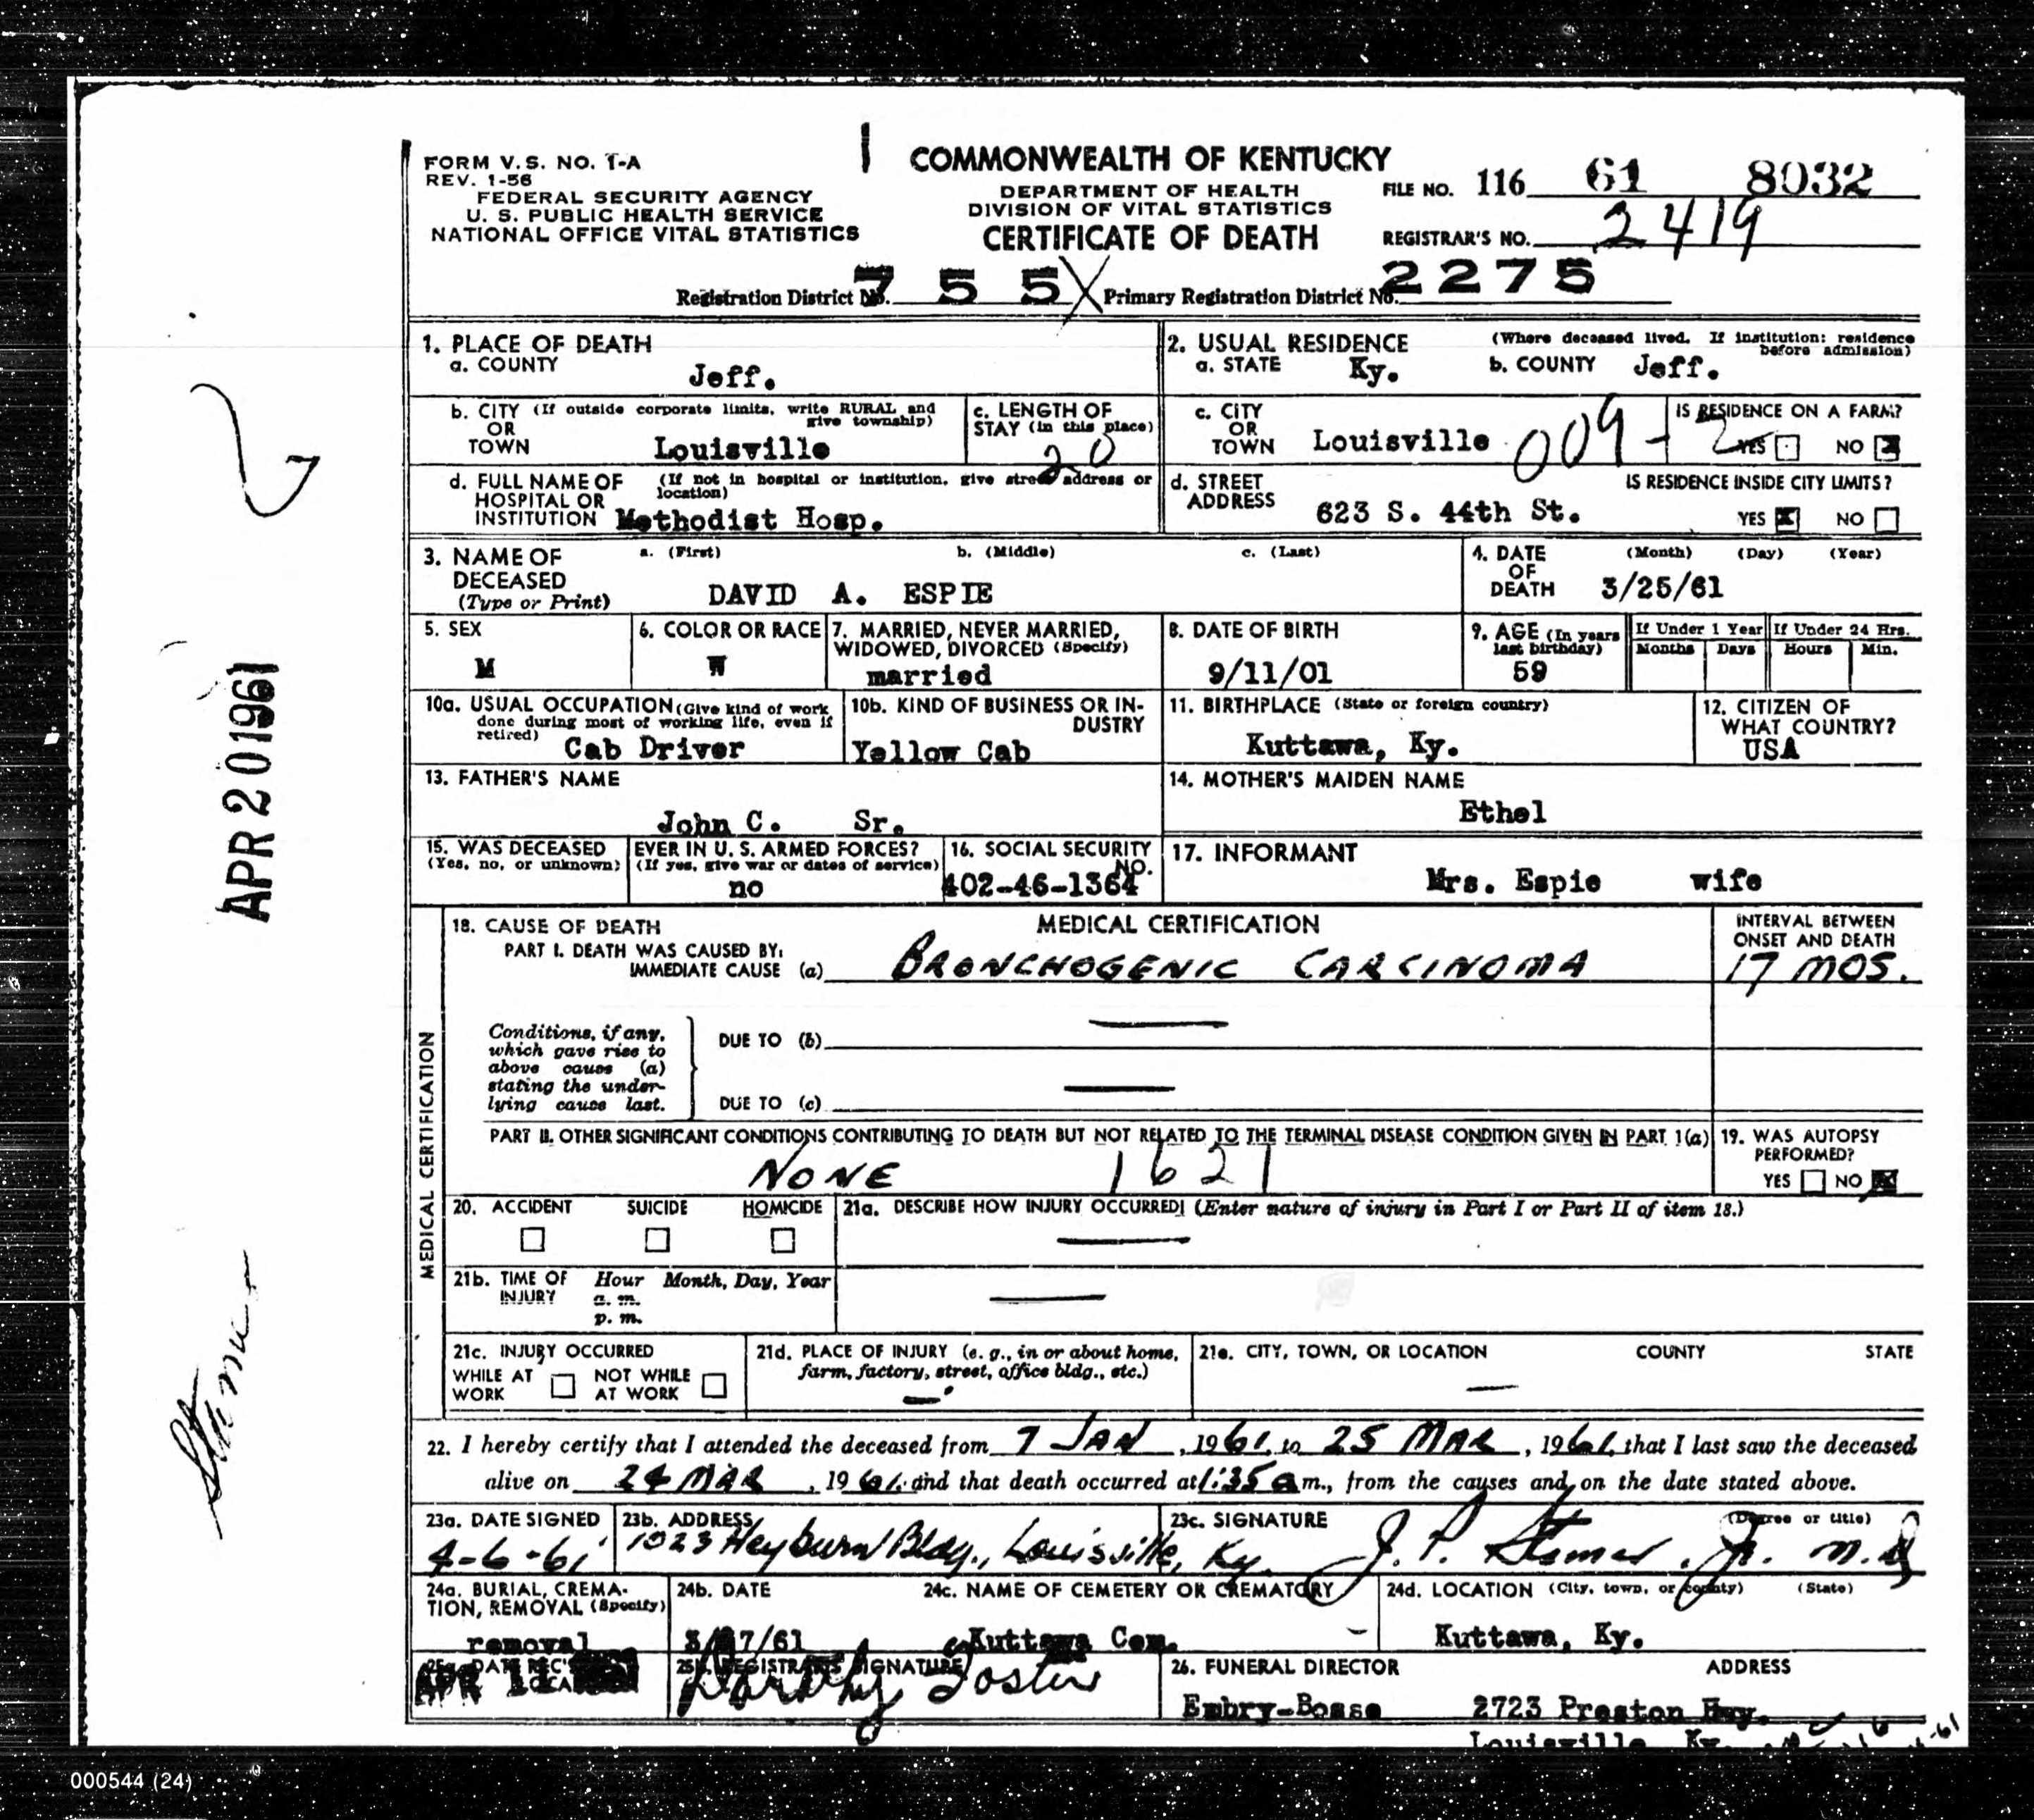 FORM V. S. NO. 1-A
REV. 1-56
FEDERAL SECURITY AGENCY
U. S. PUBLIC HEALTH SERVICE
NATIONAL OFFICE VITAL STATISTICS
COMMONWEALTH OF KENTUCKY
DEPARTMENT OF HEALTH
DIVISION OF VITAL STATISTICS
CERTIFICATE OF DEATH
FILE NO. 116 61 8032
REGISTRAR'S NO. 2419
Registration District No. 755 X Primary Registration District No. 2275
1. PLACE OF DEATH
a. COUNTY Jeff.
2. USUAL RESIDENCE (Where deceased lived. If institution: residence before admission)
a. STATE Ky. b. COUNTY Jeff.
b. CITY OR TOWN (If outside corporate limits, write RURAL and give township) Louisville
c. LENGTH OF STAY (in this place) 20
c. CITY OR TOWN Louisville 009-2
IS RESIDENCE ON A FARM? YES NO
d. FULL NAME OF HOSPITAL OR INSTITUTION (If not in hospital or institution, give street address or location) Methodist Hosp.
d. STREET ADDRESS 623 S. 44th St.
IS RESIDENCE INSIDE CITY LIMITS? YES X NO
3. NAME OF DECEASED (Type or Print) a. (First) b. (Middle) c. (Last)
DAVID A. ESPIE
4. DATE OF DEATH (Month) (Day) (Year) 3/25/61
5. SEX M
6. COLOR OR RACE W
7. MARRIED, NEVER MARRIED, WIDOWED, DIVORCED (Specify) married
8. DATE OF BIRTH 9/11/01
9. AGE (In years last birthday) 59
If Under 1 Year Months Days
If Under 24 Hrs. Hours Min.
10a. USUAL OCCUPATION (Give kind of work done during most of working life, even if retired) Cab Driver
10b. KIND OF BUSINESS OR INDUSTRY Yellow Cab
11. BIRTHPLACE (State or foreign country) Kuttawa, Ky.
12. CITIZEN OF WHAT COUNTRY? USA
13. FATHER'S NAME John C. Sr.
14. MOTHER'S MAIDEN NAME Ethel
15. WAS DECEASED EVER IN U. S. ARMED FORCES?
(Yes, no, or unknown) (If yes, give war or dates of service) no
16. SOCIAL SECURITY NO. 402-46-1364
17. INFORMANT Mrs. Espie wife
MEDICAL CERTIFICATION
18. CAUSE OF DEATH MEDICAL CERTIFICATION
PART I. DEATH WAS CAUSED BY:
IMMEDIATE CAUSE (a) BRONCHOGENIC CARCINOMA
INTERVAL BETWEEN ONSET AND DEATH 17 MOS.
Conditions, if any, which gave rise to above cause (a) stating the underlying cause last.
DUE TO (b)
DUE TO (c)
PART II. OTHER SIGNIFICANT CONDITIONS CONTRIBUTING TO DEATH BUT NOT RELATED TO THE TERMINAL DISEASE CONDITION GIVEN IN PART 1(a)
NONE 1621
19. WAS AUTOPSY PERFORMED? YES NO X
20. ACCIDENT SUICIDE HOMICIDE
21a. DESCRIBE HOW INJURY OCCURRED! (Enter nature of injury in Part I or Part II of item 18.)
21b. TIME OF INJURY Hour Month, Day, Year
a. m.
p. m.
21c. INJURY OCCURRED
WHILE AT WORK NOT WHILE AT WORK
21d. PLACE OF INJURY (e. g., in or about home, farm, factory, street, office bldg., etc.)
21e. CITY, TOWN, OR LOCATION COUNTY STATE
22. I hereby certify that I attended the deceased from 7 JAN, 1961, to 25 MAR, 1961, that I last saw the deceased
alive on 24 MAR, 1961, and that death occurred at 1:35 a m., from the causes and on the date stated above.
23a. DATE SIGNED 4-6-61
23b. ADDRESS 1023 Heyburn Bldg., Louisville, Ky.
23c. SIGNATURE (Degree or title) J. P. Jr. M.D
24a. BURIAL, CREMATION, REMOVAL (Specify) removal
24b. DATE 3/27/61
24c. NAME OF CEMETERY OR CREMATORY Kuttawa Cem.
24d. LOCATION (City, town, or county) (State) Kuttawa, Ky.
APR 11
REGISTRAR'S SIGNATURE Dorothy Foster
26. FUNERAL DIRECTOR ADDRESS
Embry-Bosse 2723 Preston Hwy.
Louisville Ky.
APR 20 1961
000544 (24)